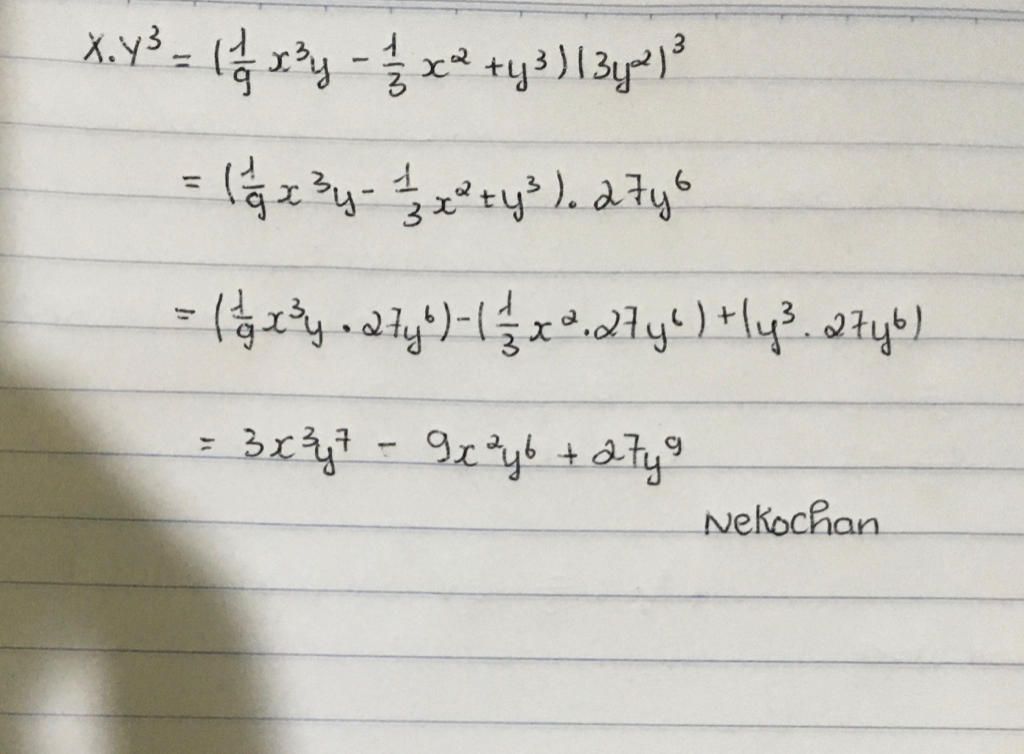 X.Y³ = (1/9 x³y - 1/3 x² + y³)(3y²)³
= (1/9 x³y - 1/3 x² + y³). 27y⁶
= (1/9 x³y . 27y⁶) - (1/3 x² . 27y⁶) + (y³ . 27y⁶)
= 3x³y⁷ - 9x²y⁶ + 27y⁹
Nekochan